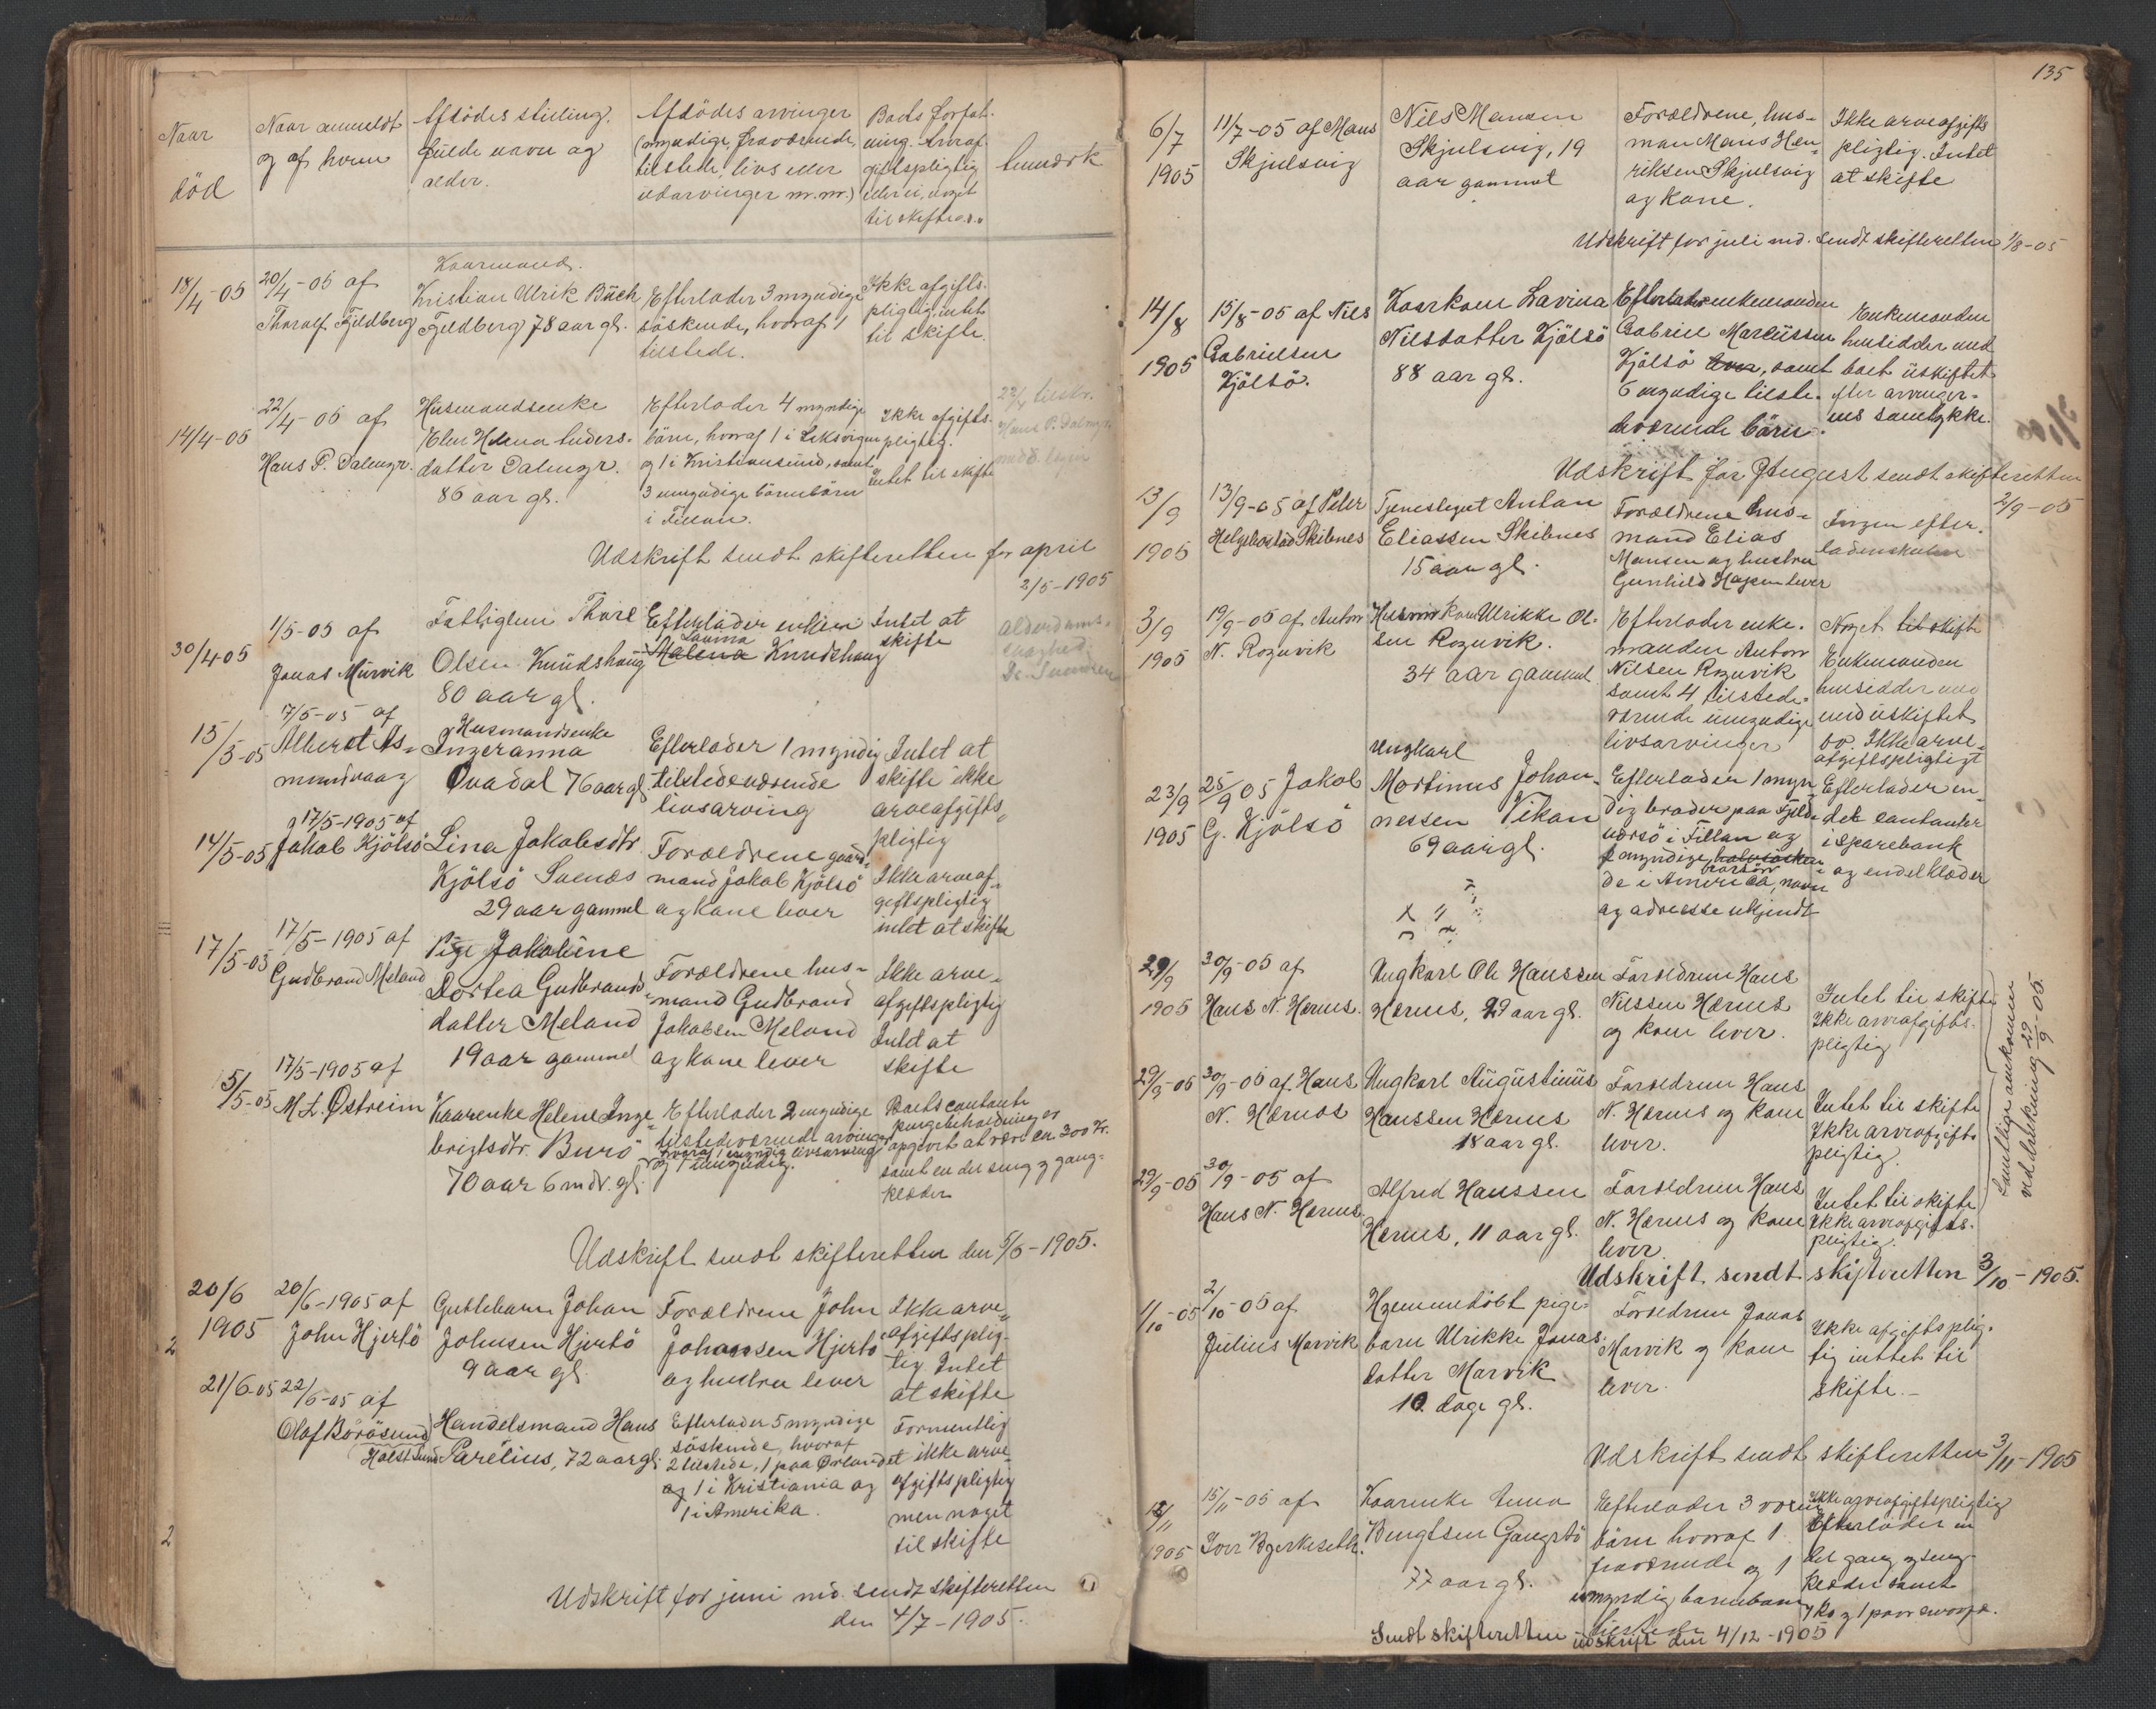 Naar
död
Naar anmeldt
og af hvem
Afdödes stilling,
fulde navn og
alder.
Afdödes arvinger
(myndige, fraværende,
tilstede, livs eller
udarvinger m.m.)
Boets forfat-
ning. Arveaf
giftspligtig
eller ei, noget
til skifte o.s.v.
Anmærk
18/4-05
20/4-05 af
Thoralf Fjeldberg
Kaarmand.
Kristian Ulrik Büch
Fjeldberg 78 aar gl.
Efterlader 3 myndige
söskende, hvoraf 1
tilstede.
Ikke afgifts-
pligtig, intet
til skifte.
14/4-05
22/4-05 af
Hans P. Dalmyr.
Husmandsenke
Elen Helena Anders-
datter Dalmyr.
86 aar gl.
Efterlader 4 myndige
börn, hvoraf 1 i Leksvigen
og 1 i Kristiansund, samt
3 umyndige börnebörn
i Fillan.
Ikke afgifts-
pligtig.
Intet til skifte
Hans P. Dalmyr
Udskrift sendt skifteretten for april
2/5-1905
30/4-05
1/5-05 af
Jonas Mürvik
Fattiglem Thore
Olsen Knudshaug
80 aar gl.
Efterlader enken
Lavina
Malena Knudshaug
Intet at
skifte
Alderdoms-
svaghed
15/5-05
7/5-05 af
Albert As-
mundvaag
Husmandsenke
Ingeranna
Qvadal 76 aar gl.
Efterlader 1 myndig
tilstedeværende
livsarving
Intet at
skifte ikke
arveafgifts-
pligtig
14/5-05
17/5-1905 af
Jakob Kjölsö
Lina Jakobsdtr
Kjölsö Svenœs
29 aar gammel
Forældrene gaard-
mand Jakob Kjölsö
og kone lever
Ikke arveaf-
giftspligtig
intet at skifte
17/5-05
17/5-1905 af
Gudbrand Meland
Pige Jakobine
Dortea Gudbrands-
datter Meland
19 aar gammel
Forældrene hus-
mand Gudbrand
Jakobsen Meland
og kone lever
Ikke arve-
afgiftspligtig
Intet at
skifte
5/5-05
17/5-1905 af
M. L. Østreim
Kaarenke Helene Inge-
brigtsdtr. Burö
70 aar 6 mdr. gl.
Efterlader 2 myndige
tilstedeværende arvinger
hvoraf 1 myndig livsarving
og 1 umyndig.
Boets contante
pengebeholdning er
opgivet at være ca 300 Kr.
samt en del seng og gang-
klæder
Udskrift sendt skifteretten den 5/6-1905.
20/6
1905
20/6-1905 af
John Hjertö
Guttebarn Johan
Johnsen Hjertö
9 aar gl.
Forældrene John
Johansen Hjertö
og hustru lever
Ikke arve-
afgiftsplig-
tig. Intet
at skifte
21/6-05
22/6-05 af
Olaf Börösund
Holstsund
Handelsmand Hans
Parelius, 72 aar gl.
Efterlader 5 myndige
söskende, hvoraf
2 tilstede, 1 paa Ørlandet
og 1 i Kristiania og
1 i Amerika.
Formentlig
ikke arve-
afgiftspligtig
men noget
til skifte
Udskrift for juni md. sendt skifteretten
den 4/7-1905.
135
6/7
1905
11/7-05 af Mans
Skjulsvig
Nils Mansen
Skjulsvig, 19
aar gammel
Forældrene, hus-
man Mans Hen-
riksen Skjulsvig
og kone.
Ikke arveafgifts
pligtig. Intet
at skifte
Udskrift for juli md. sendt skifteretten 1/8-05
14/8
1905
15/8-05 af Nils
Gabrielsen
Kjölsö.
Kaarkone Lavina
Nilsdatter Kjölsö
88 aar gl.
Efterlader enkemanden
Gabriel Marcüssen
Kjölsö, samt
6 myndige tilste-
deværende börn.
Enkemanden
hensidder med
boet üskiftet
efter arvinger-
nes samtykke.
Udskrift for August sendt skifteretten
2/9-05
13/9
1905
13/9-05 af Peter
Helgebostad Skibnes
Tjenestegut Anton
Eliassen Skibnes
15 aar gl.
Forældrene hus-
mand Elias
Monsen og hustru
Gunhild Hagen lever
Ingen efter-
ladenskaber
3/9
1905
19/9-05 af Anton
N. Rognvik
Husmkone Ulrikke Ol-
sen Rognvik.
34 aar gammel
Efterlader enke-
manden Anton
Nilsen Rognvik
samt 4 tilstede-
værende umyndige
livsarvinger
Noget til skifte
Enkemanden
hensidder
med uskiftet
bo. Ikke arve-
afgiftspligtigt
23/9
1905
25/9 05 Jakob
G. Kjölsö
Ungkarl
Mortinus Johan-
nessen Vikan
69 aar gl.
Efterlader 1 myn-
dig broder paa Fjeld-
værsö i Fillan og
2 myndige halvsösken-
de i America, navn
og adresse ukjendt
Efterlader en
del contanter
i Sparebank
og endel klæder
29/9
1905
30/9-05 af
Hans N. Hernes.
Ungkarl Ole Hanssen
Hernes, 29 aar gl.
Forældrene Hans
Nilssen Hernes
og kone lever.
Intet til skifte
Ikke arveafgifts-
pligtig
29/9-05
30/9-05 af Hans
N. Hernes
Ungkarl Augustinüs
Hanssen Hernes
18 aar gl.
Forældrene Hans
N. Hernes og kone
lever.
Intet til skifte
Ikke arveafgifts
pligtig.
29/9-05
30/9-05 af
Hans N. Hernes.
Alfred Hanssen
Hernes, 11 aar gl.
Forældrene Hans
N. Hernes og kone
lever.
Intet til skifte
Ikke arveafgifts-
pligtig.
Samtlige omkommen
ved drukning 29/9-05
Udskrift sendt skifteretten 3/10-1905.
1/10-05
2/10-05 af
Julius Marvik
Hjemmedöbt pige-
barn Ulrikke Jonas-
datter Marvik
10 dage gl.
Forældrene Jonas
Marvik og kone
lever.
Ikke afgiftsplig-
tig intet til
skifte.-
Udskrift sendt skifteretten 3/11-1905
12/11
1905
15/11-05 af
Iver Bjerkeseth.
Kaarenke Anna
Bengtsen Gangstö
77 aar gl.
Efterlader 3 voxne
börn hvoraf 1
fraværende og 1
umyndig barnebarn
tilstede
Ikke arveafgiftspligtig
Efterlader en
del gang og seng-
klæder samt
1 ko og 1 par
Sendt skifteretten udskrift den 4/12-1905